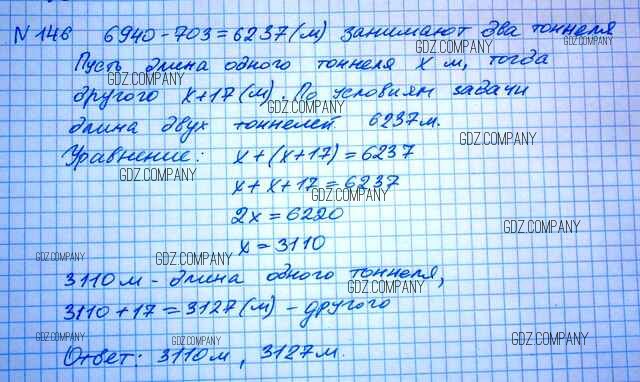 N 146 6940-703=6237(м) занимают два тоннеля
GDZ.COMPANY
Пусть длина одного тоннеля x м, тогда
GDZ.COMPANY
другого x+17(м). По условиям задачи
GDZ.COMPANY
длина двух тоннелей 6237м.
GDZ.COMPANY
Уравнение: x+(x+17)=6237
GDZ.COMPANY
x+x+17=6237
GDZ.COMPANY
2x=6220
GDZ.COMPANY
x=3110
GDZ.COMPANY
GDZ.COMPANY
3110м-длина одного тоннеля,
GDZ.COMPANY
3110+17=3127(м)-другого
GDZ.COMPANY
GDZ.COMPANY
GDZ.COMPANY
Ответ: 3110м, 3127м.
GDZ.COMPANY